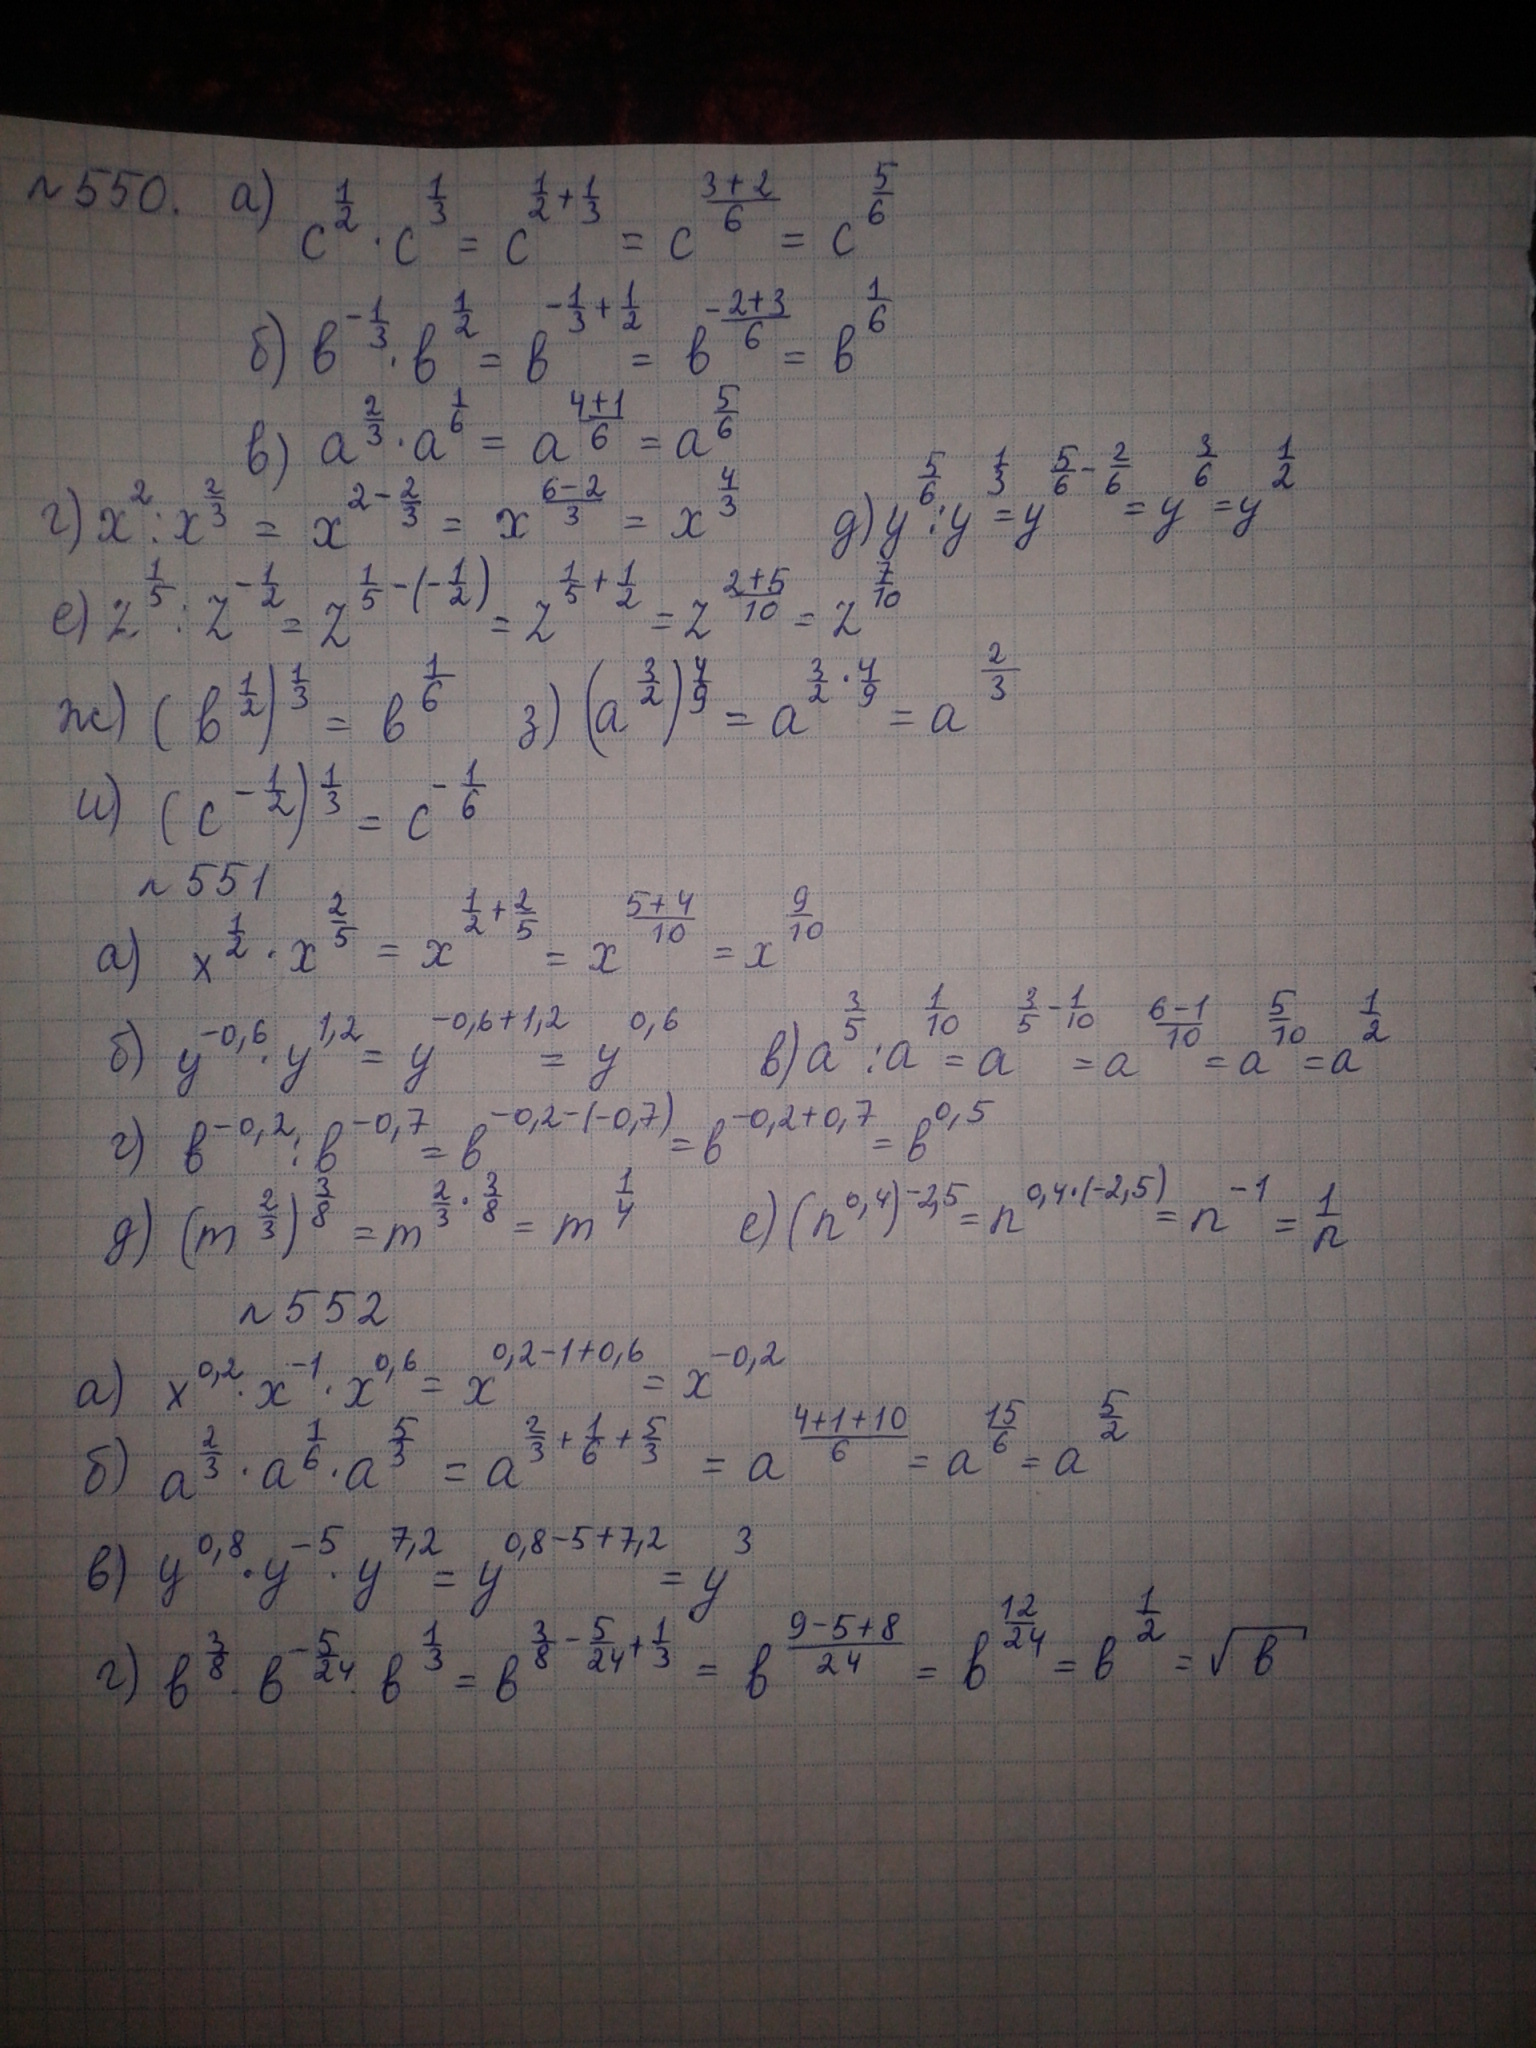 №550. а) c^{1/2} · c^{1/3} = c^{1/2 + 1/3} = c^{(3+2)/6} = c^{5/6}
б) b^{-1/3} · b^{1/2} = b^{-1/3 + 1/2} = b^{(-2+3)/6} = b^{1/6}
в) a^{2/3} · a^{1/6} = a^{(4+1)/6} = a^{5/6}
г) x^{2} : x^{2/3} = x^{2 - 2/3} = x^{(6-2)/3} = x^{4/3} д) y^{5/6} : y^{1/3} = y^{5/6 - 2/6} = y^{3/6} = y^{1/2}
е) z^{1/5} : z^{-1/2} = z^{1/5 - (-1/2)} = z^{1/5 + 1/2} = z^{(2+5)/10} = z^{7/10}
ж) (b^{1/2})^{1/3} = b^{1/6} з) (a^{3/2})^{4/9} = a^{3/2 · 4/9} = a^{2/3}
и) (c^{-1/2})^{1/3} = c^{-1/6}
№551
а) x^{1/2} · x^{2/5} = x^{1/2 + 2/5} = x^{(5+4)/10} = x^{9/10}
б) y^{-0,6} · y^{1,2} = y^{-0,6+1,2} = y^{0,6} в) a^{3/5} : a^{1/10} = a^{3/5 - 1/10} = a^{(6-1)/10} = a^{5/10} = a^{1/2}
г) b^{-0,2} : b^{-0,7} = b^{-0,2-(-0,7)} = b^{-0,2+0,7} = b^{0,5}
д) (m^{2/3})^{3/8} = m^{2/3 · 3/8} = m^{1/4} е) (n^{0,4})^{-2,5} = n^{0,4·(-2,5)} = n^{-1} = 1/n
№552
а) x^{0,2} · x^{-1} · x^{0,6} = x^{0,2-1+0,6} = x^{-0,2}
б) a^{2/3} · a^{1/6} · a^{5/3} = a^{2/3 + 1/6 + 5/3} = a^{(4+1+10)/6} = a^{15/6} = a^{5/2}
в) y^{0,8} · y^{-5} · y^{7,2} = y^{0,8-5+7,2} = y^{3}
г) b^{3/8} · b^{-5/24} · b^{1/3} = b^{3/8 - 5/24 + 1/3} = b^{(9-5+8)/24} = b^{12/24} = b^{1/2} = √b